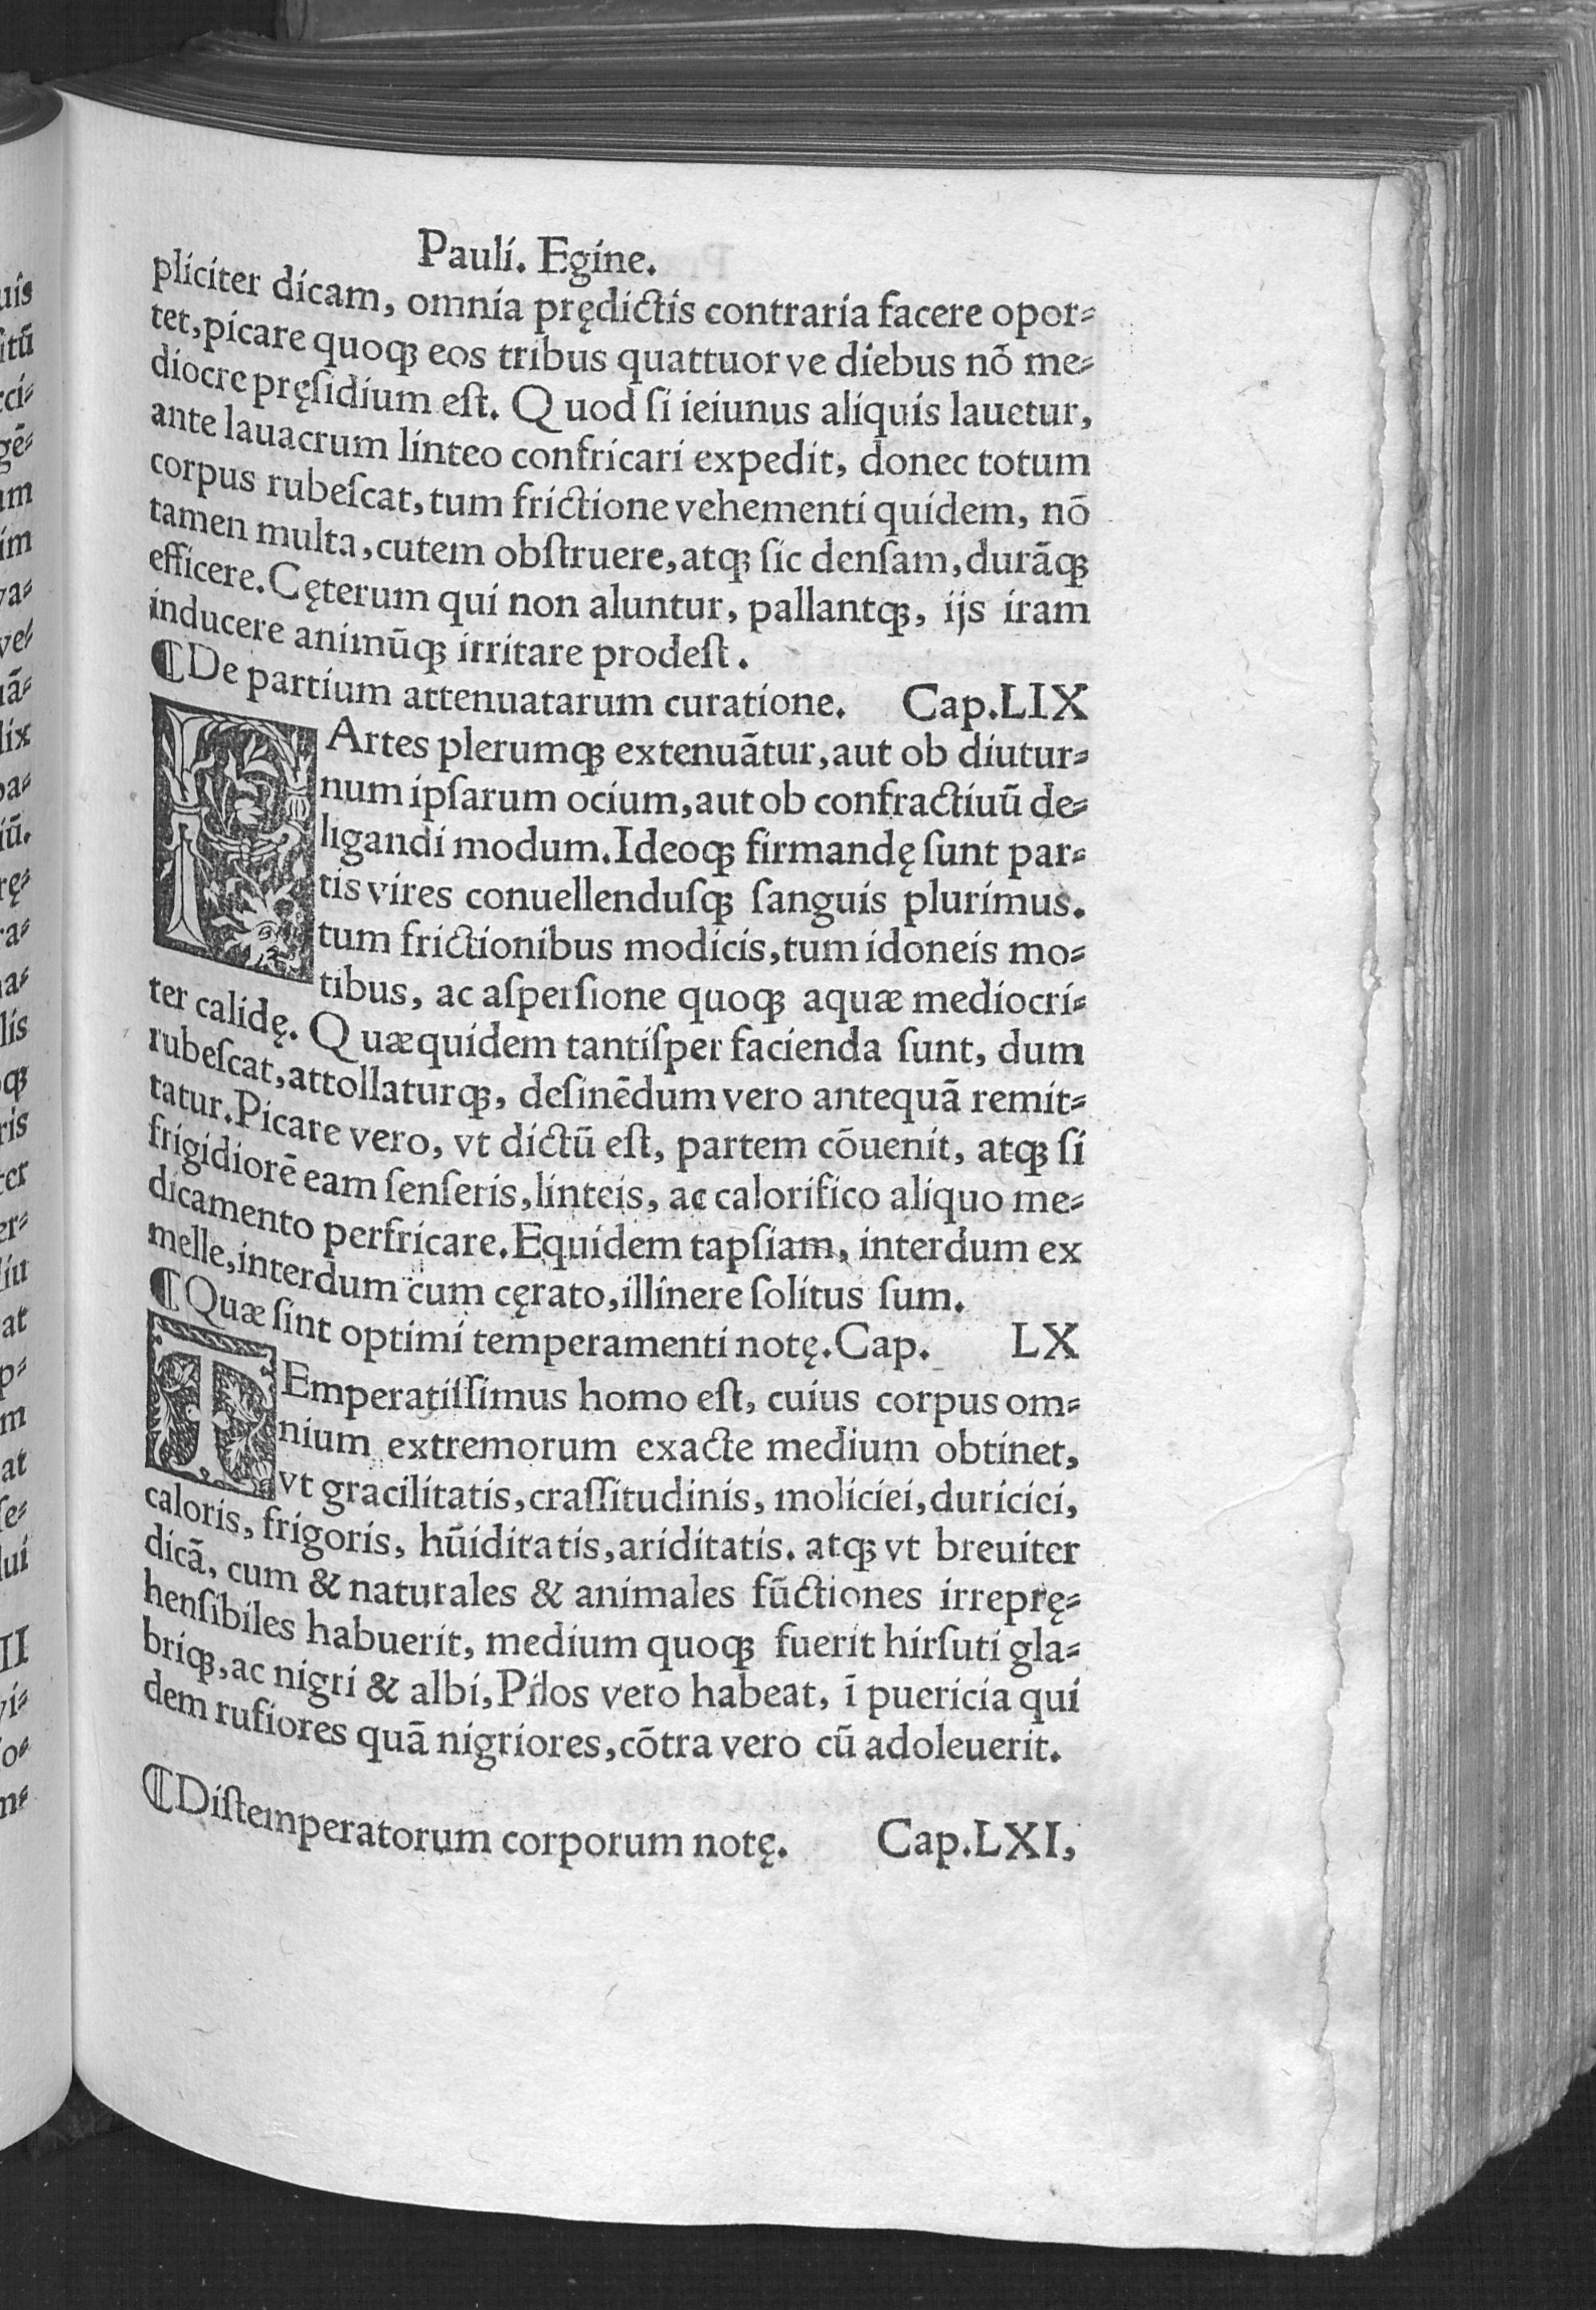 Pauli. Egine.
pliciter dicam, omnia prędictis contraria facere opor⸗
tet, picare quoqꝫ eos tribus quattuor ve diebus nõ me⸗
diocre pręſidium eſt. Quod ſi ieiunus aliquis lauetur,
ante lauacrum linteo confricari expedit, donec totum
corpus rubeſcat, tum frictione vehementi quidem, nõ
tamen multa, cutem obſtruere, atqꝫ ſic denſam, durãqꝫ
efficere. Cęterum qui non aluntur, pallantqꝫ, ijs iram
inducere animũqꝫ irritare prodeſt.
¶De partium attenuatarum curatione. Cap. LIX
PArtes plerumqꝫ extenuãtur, aut ob diutur⸗
num ipſarum ocium, aut ob confractiuũ de⸗
ligandi modum. Ideoqꝫ firmandę ſunt par⸗
tis vires conuellenduſqꝫ ſanguis plurimus.
tum frictionibus modicis, tum idoneis mo⸗
tibus, ac aſperſione quoqꝫ aquæ mediocri⸗
ter calidę. Quæ quidem tantiſper facienda ſunt, dum
rubeſcat, attollaturqꝫ, deſinẽdum vero antequã remit⸗
tatur. Picare vero, vt dictũ eſt, partem cõuenit, atqꝫ ſi
frigidiorẽ eam ſenſeris, linteis, ac calorifico aliquo me⸗
dicamento perfricare. Equidem tapſiam, interdum ex
melle, interdum cum cęrato, illinere ſolitus ſum.
¶Quæ ſint optimi temperamenti notę. Cap. LX
TEmperatiſſimus homo eſt, cuius corpus om⸗
nium extremorum exacte medium obtinet,
vt gracilitatis, craſſitudinis, moliciei, duriciei,
caloris, frigoris, hũiditatis, ariditatis. atqꝫ vt breuiter
dicã, cum & naturales & animales fũctiones irreprę⸗
henſibiles habuerit, medium quoqꝫ fuerit hirſuti gla⸗
briqꝫ, ac nigri & albi, Pilos vero habeat, ĩ puericia qui
dem rufiores quã nigriores, cõtra vero cũ adoleuerit.
¶Diſtemperatorum corporum notę. Cap. LXI,